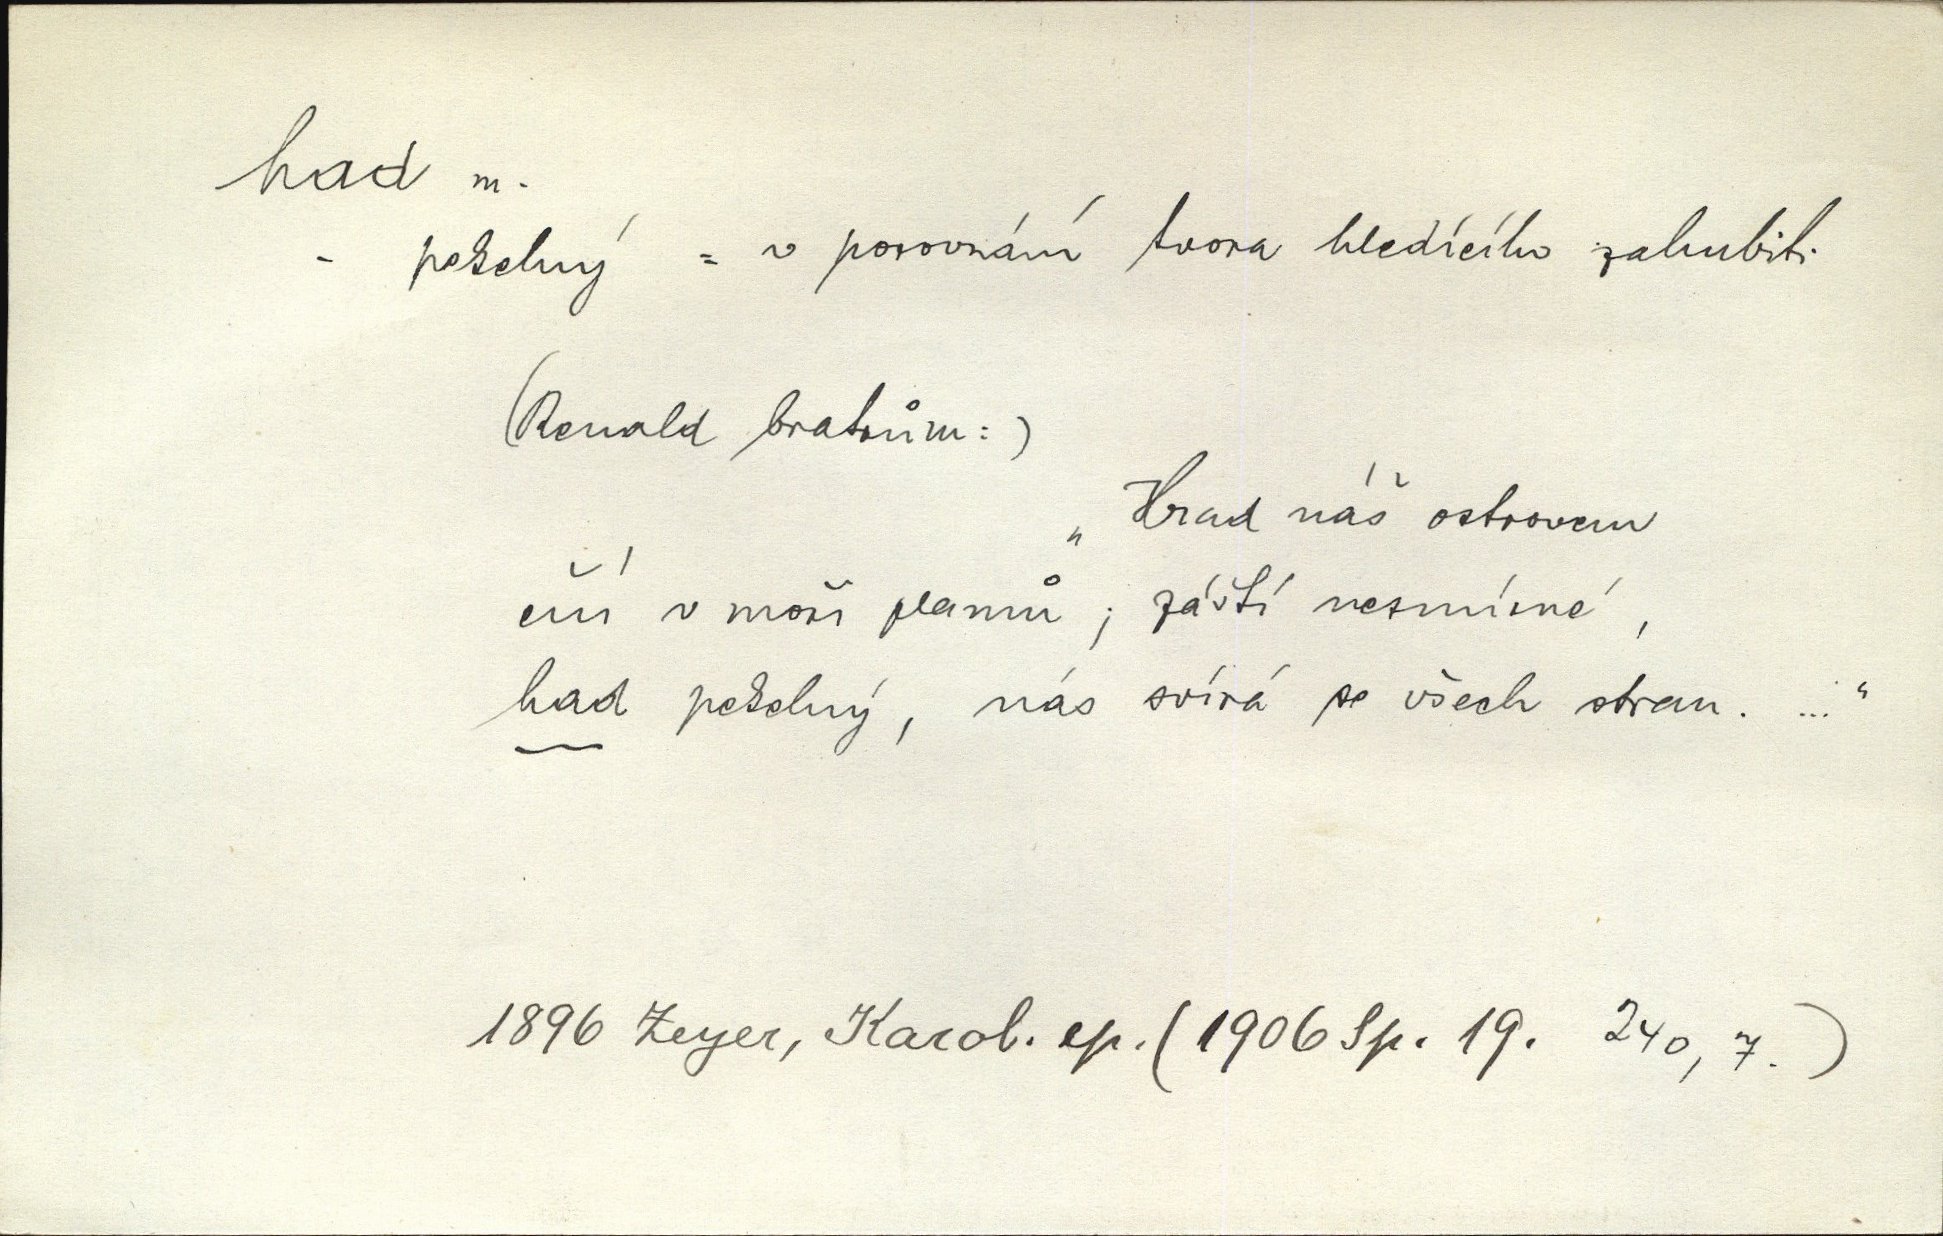 had m.
- pekelný = v porovnání tvora hledícího zahubiti
(Renald bratrům:)
„Hrad náš ostrovem
ční v moři plamů; záští nesmírné,
had pekelný, nás svírá se všech stran. ..."
1896 Zeyer, Karol. ep. (1906 Sp. 19. 240, 7.)